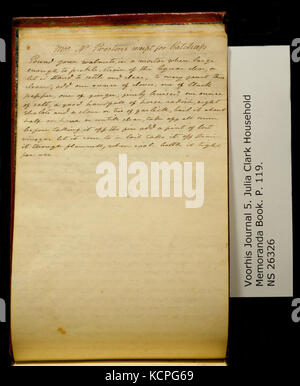 Mrs. Wm Preston's receipt for Catchup
Pound green walnuts, in a mortar when large
enough to pickle, strain off the liquor clear,
let it stand to settle and clear, to every quart thus
cleared, add one ounce of cloves, one of black
pepper, one of ginger, finely bruised one ounce
of salt, a good handful of horse radish, eight
shalots and a clove or two of garlick, boil it about
half an hour or until clear, take off all scum
before taking it off the fire add a pint of best
vinegar let it come to a boil take it off strain
it through flannel, when cool bottle it tight
for use
Voorhis Journal 5. Julia Clark Household
Memoranda Book. P. 119.
NS 26326
alamy
Image ID: KCPG69
www.alamy.com